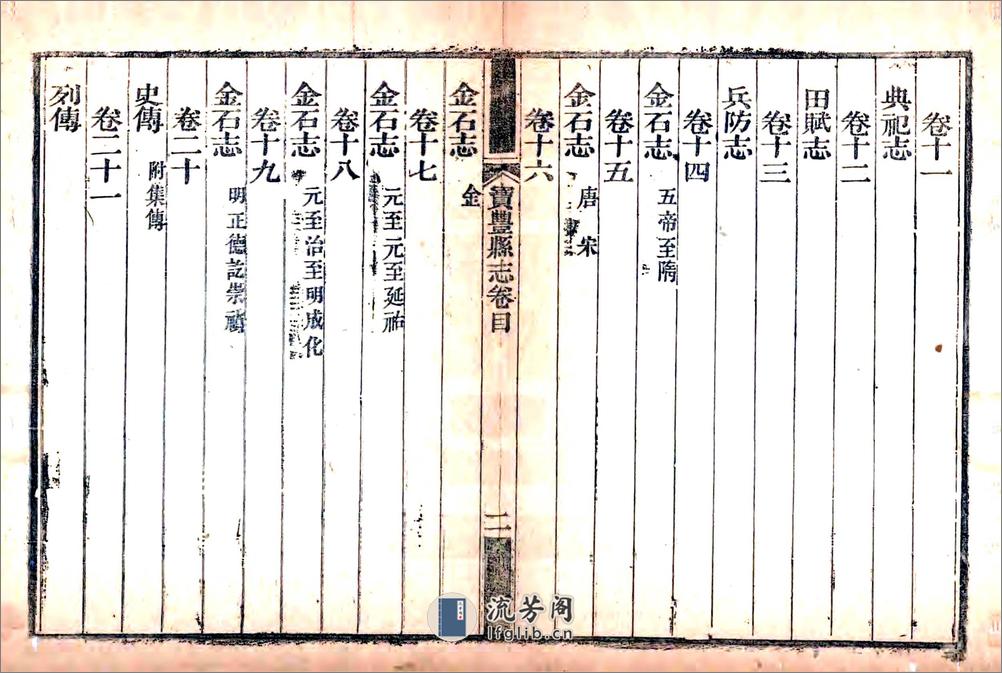 卷十一
典祀志
卷十二
田賦志
卷十三
兵防志
卷十四
金石志 五帝至隋
卷十五
金石志 唐 宋
卷十六
寶豐縣志卷目
二
金石志 金
卷十七
金石志 元至元至延祐
卷十八
金石志 元至治至明成化
卷十九
金石志 明正德訖崇禎
卷二十
史傳 附集傳
卷二十一
列傳
流芳阁
lfglib.cn